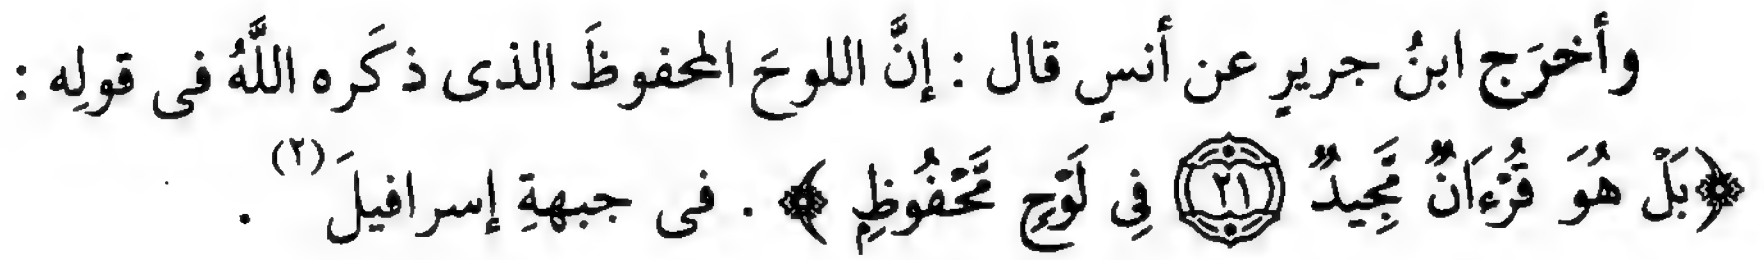 وأخرَج ابنُ جريرٍ عن أنسٍ قال : إنَّ اللوحَ المحفوظَ الذى ذكَره اللَّهُ فى قولِه :
﴿بَلْ هُوَ قُرْءَانٌ مَّجِيدٌ ﴿٢١﴾ فِى لَوْحٍ مَّحْفُوظٍ﴾ . فى جبهةِ إسرافيلَ (٢) .